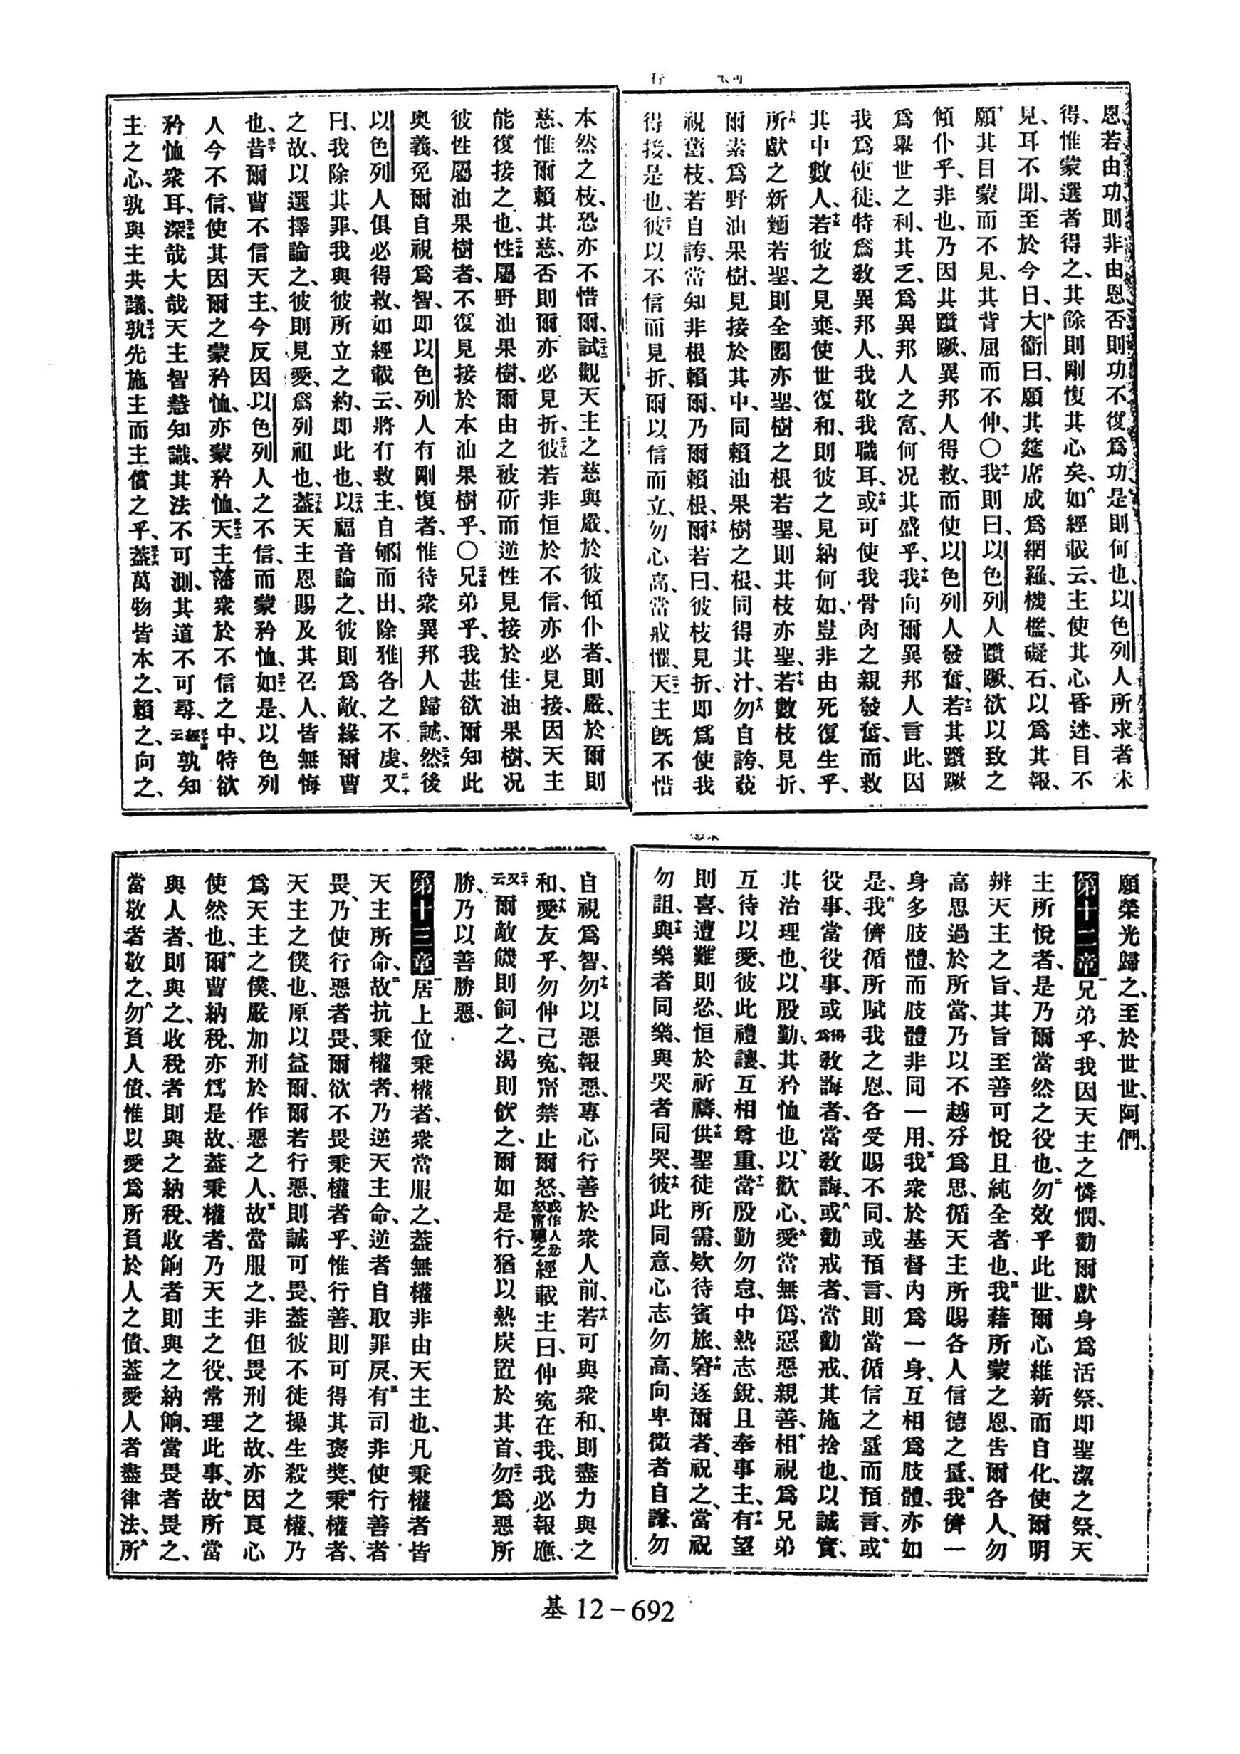 恩若由功則非由恩、否則功不復爲功、是則何也、以色列人所求者未
得、惟蒙選者得之、其餘則剛愎其心矣、如經載云、主使其心昏迷、目不
見、耳不聞、至於今日、大衞曰、願其筵席成爲網羅、機檻、礙石、以爲其報、
願其目蒙而不見、其背屈而不伸、〇我則曰、以色列人躓蹶、欲以致之
傾仆乎、非也、乃因其躓蹶、異邦人得救、而使以色列人發奮、若其躓蹶
爲舉世之利、其乏、爲異邦人之富、何况其盛乎、我向爾異邦人言此、因
我爲使徒、特爲敎異邦人、我敬我職耳、或可使我骨肉之親發奮、而救
其中數人、若彼之見棄、使世復和、則彼之見納何如、豈非由死復生乎、
所獻之新麵若聖、則全團亦聖、樹之根若聖、則其枝亦聖、若數枝見折、
爾素爲野油果樹、見接於其中、同賴油果樹之根、同得其汁、勿自誇、藐
視舊枝、若自誇、當知非根賴爾、乃爾賴根、爾若曰、彼枝見折、即爲使我
得接、是也、彼以不信而見折、爾以信而立、勿心高、當戒懼、天主旣不惜
本然之枝、恐亦不惜爾、試觀天主之慈與嚴、於彼傾仆者、則嚴、於爾則
慈、惟爾賴其慈、否則爾亦必見折、彼若非恒於不信、亦必見接、因天主
能復接之也、性屬野油果樹、爾由之被斫、而逆性見接於佳油果樹、况
彼性屬油果樹者、不復見接於本油果樹乎、〇兄弟乎、我甚欲爾知此
奧義、免爾自視爲智、即以色列人有剛愎者、惟待衆異邦人歸誠、然後
以色列人俱必得救、如經載云、將有救主、自郇而出、除雅各之不虔、又
曰、我除其罪、我與彼所立之約、即此也、以福音論之、彼則爲敵、緣爾曹
之故、以選擇論之、彼則見愛、爲列祖也、蓋天主恩賜及其召人、皆無悔
也、昔爾曹不信天主、今反因以色列人之不信、而蒙矜恤、如是、以色列
人今不信、使其因爾之蒙矜恤、亦蒙矜恤、天主藩衆於不信之中、特欲
矜恤衆耳、深哉大哉天主智慧知識、其法不可測、其道不可尋、經云孰知
主之心、孰與主共議、孰先施主而主償之乎、蓋萬物皆本之、賴之、向之、
願榮光歸之、至於世世、阿們、
第十二章 兄弟乎、我因天主之憐憫、勸爾獻身爲活祭、即聖潔之祭、天
主所悅者、是乃爾當然之役也、勿效乎此世、爾心維新而自化、使爾明
辨天主之旨、其旨至善可悅且純全者也、我藉所蒙之恩、告爾各人、勿
高思過於所當、乃以不越分爲思、循天主所賜各人信德之量、我儕一
身多肢體、而肢體非同一用、我衆於基督內爲一身、互相爲肢體、亦如
是、我儕循所賦我之恩、各受賜不同、或預言、則當循信之量而預言、或
役事、當役事、或爲師敎誨者、當敎誨、或勸戒者、當勸戒、其施捨也、以誠實、
其治理也、以殷勤、其矜恤也、以歡心、愛當無僞、惡惡親善、相視爲兄弟
互待以愛、彼此禮讓、互相尊重、當殷勤勿怠、中熱志銳、且奉事主、有望
則喜、遭難則忍、恒於祈禱、供聖徒所需、欵待賓旅、窘逐爾者、祝之、當祝
勿詛、與樂者同樂、與哭者同哭、彼此同意、心志勿高、向卑微者自謙、勿
自視爲智、勿以惡報惡、專心行善於衆人前、若可與衆和、則盡力與之
和、愛友乎、勿伸己寃、甯禁止爾怒、或作人忿怒甯聽之經載主曰、伸寃在我、我必報應、
又云爾敵饑則飼之、渴則飲之、爾如是行、猶以熱炭置於其首、勿爲惡所
勝、乃以善勝惡、
第十三章 居上位秉權者、衆當服之、蓋無權非由天主也、凡秉權者皆
天主所命、故抗秉權者、乃逆天主命、逆者自取罪戾、有司非使行善者
畏、乃使行惡者畏、爾欲不畏秉權者乎、惟行善、則可得其褒奬、秉權者、
天主之僕也、原以益爾、爾若行惡、則誠可畏、蓋彼不徒操生殺之權、乃
爲天主之僕、嚴加刑於作惡之人、故當服之、非但畏刑之故、亦因良心
使然也、爾曹納稅、亦爲是故、蓋秉權者、乃天主之役、常理此事、故所當
與人者、則與之、收稅者則與之納稅、收餉者則與之納餉、當畏者畏之、
當敬者敬之、勿負人債、惟以愛爲所負於人之債、蓋愛人者盡律法、所
基 12－692